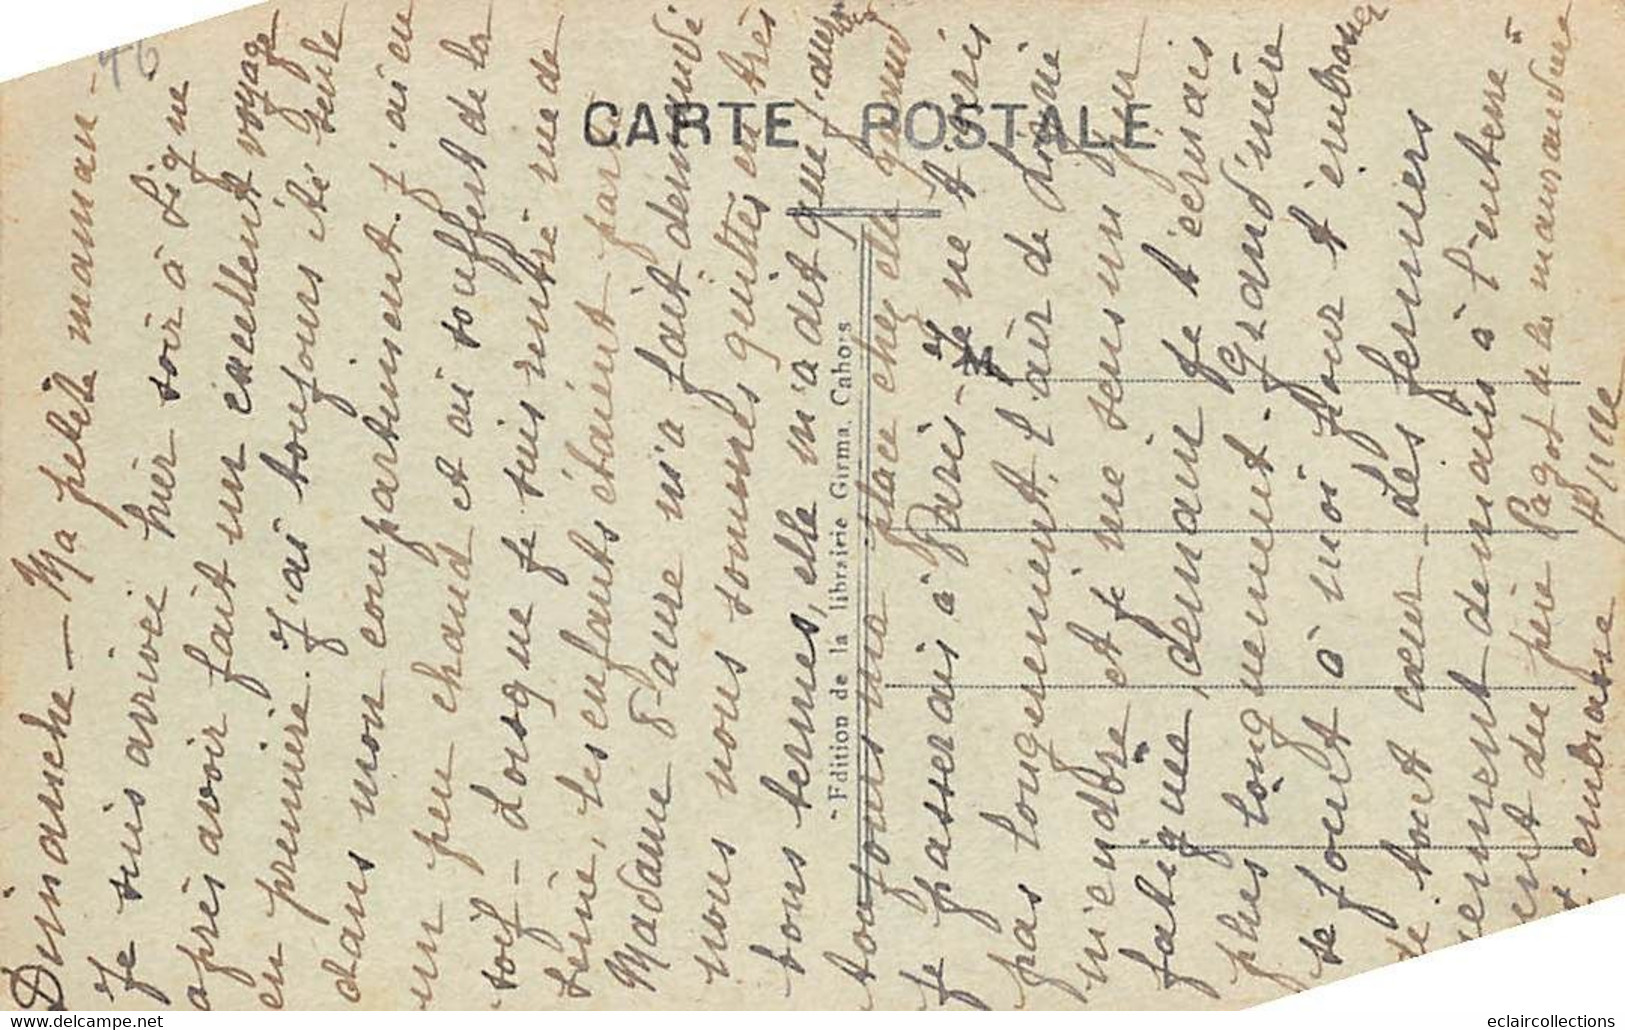 46
CARTE POSTALE
"Edition de la librairie Girma, Cahors
Dimanche - Ma petite maman -
Je suis arrivée hier soir à Ligné
après avoir fait un excellent voyage
en première. J'ai toujours été seule
dans mon compartiment. J'ai eu
un peu chaud et ai souffert de la
soif - Lorsque je suis rentré rue de
Seine, les enfants étaient partis
Madame Faure m'a fait demandé
nous nous sommes quittés en très
bons termes, elle m'a dit que j'aurais
toujours ma place chez elle quand
je passerais à Paris - Je ne t'écris
pas longuement, l'air de Ligné
m'endore et je me sens un peu
fatiguée, demain je t'écrirais
plus longuement. Grand'mère
se joint à moi pour t'embrasser
de tout cœur - Les fermiers
viennent demain à l'entente
du père Pagot de la
t. embrasse